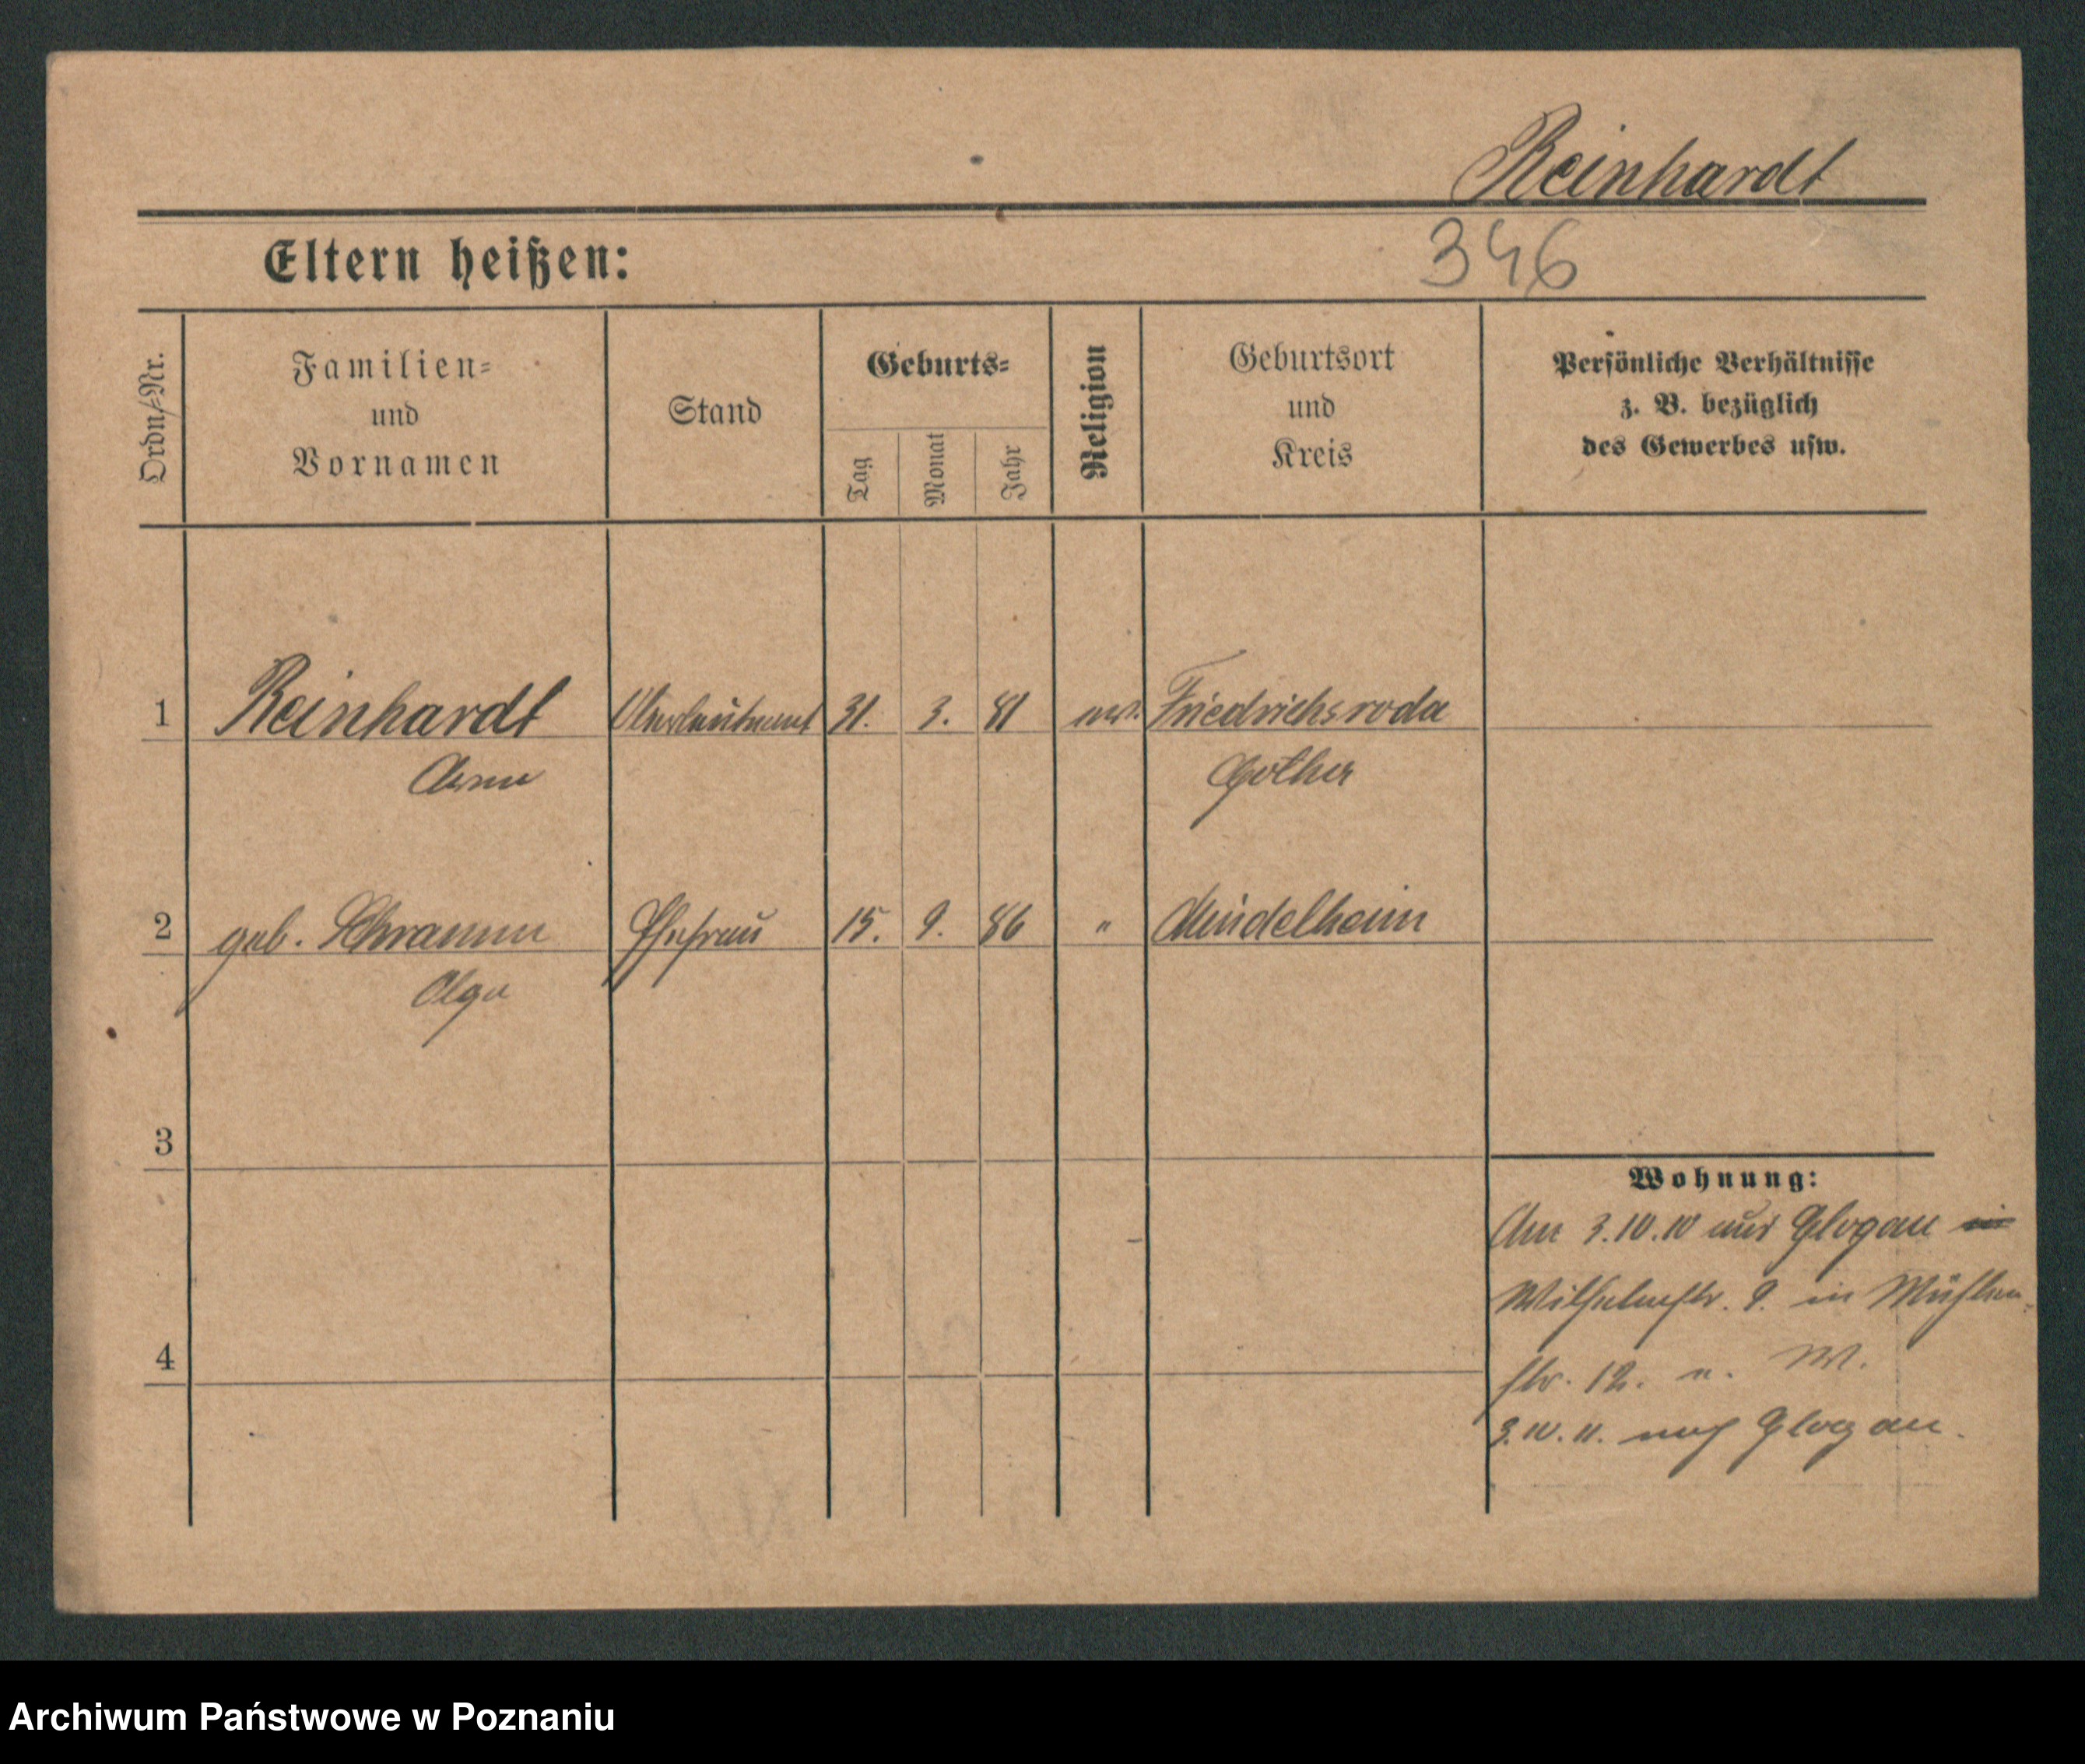 Reinhardt
Eltern heißen:
346
Ordn.-Nr.
Familien-
und
Vornamen
Stand
Geburts-
Tag
Monat
Jahr
Religion
Geburtsort
und
Kreis
Persönliche Verhältnisse
z. B. bezüglich
des Gewerbes usw.
1 Reinhardt Oberleutnant 31. 3. 81 ev. Friedrichsroda
Gotha
2 geb. Schramm Ehefrau 15. 9. 86 " Mündelheim
Olga
3
Wohnung:
Am 3.10.10 aus Glogau in
Wilhelmstr. 9. in Mühlen-
4
str. 12. u. M.
3.10.11. nach Glogau.
Archiwum Państwowe w Poznaniu